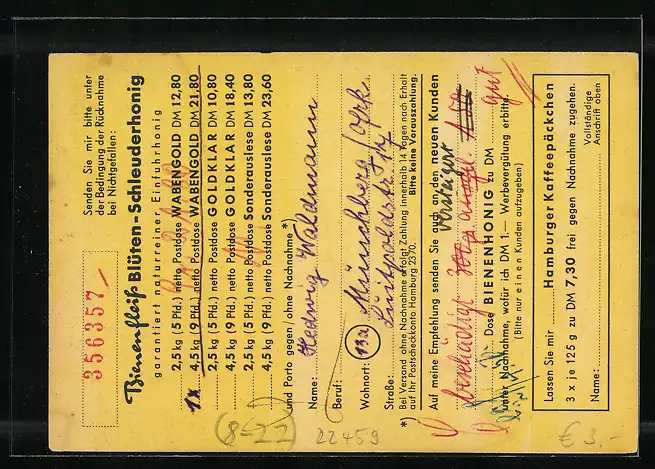 356357
Senden Sie mir bitte unter
der Bedingung der Rücknahme
bei Nichtgefallen:
Bienenfleiß Blüten-Schleuderhonig
garantiert naturreiner Einfuhrhonig
2,5 kg (5 Pfd.) netto Postdose WABENGOLD DM 12,80
1x 4,5 kg (9 Pfd.) netto Postdose WABENGOLD DM 21,80
2,5 kg (5 Pfd.) netto Postdose GOLDKLAR DM 10,80
4,5 kg (9 Pfd.) netto Postdose GOLDKLAR DM 18,40
2,5 kg (5 Pfd.) netto Postdose Sonderauslese DM 13,80
4,5 kg (9 Pfd.) netto Postdose Sonderauslese DM 23,60
und Porto gegen / ohne Nachnahme *)
Name: Hedwig Waldmann
Beruf:
Wohnort: 13a Münchberg /Ofrk.
Straße: Luitpoldstr.
*) Bei Versand ohne Nachnahme erfolgt Zahlung innerhalb 14 Tagen nach Erhalt
auf Ihr Postscheckkonto Hamburg 2370. Bitte keine Vorauszahlung.
Auf meine Empfehlung senden Sie auch an den neuen Kunden
gut
Dose BIENENHONIG zu DM
unter Nachnahme, wofür ich DM 1.— Werbevergütung erbitte.
(Bitte nur einen Kunden aufzugeben)
Lassen Sie mir Hamburger Kaffeepäckchen
3 x je 125 g zu DM 7,30 frei gegen Nachnahme zugehen.
Name:
Vollständige
Anschrift oben
(8-22)
22459
€ 3.-